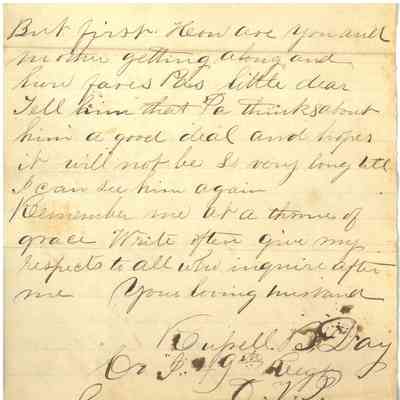 But first How are you and
mother getting along and
how fares the little dear
Tell him that Pa thinks about
him a good deal and hopes
it will not be so very long till
I can see him again
Remember me at a throne of
grace Write often give my
respects to all who inquire after
me Your loving husband
Russell B. Day
Co I. 9th Regt